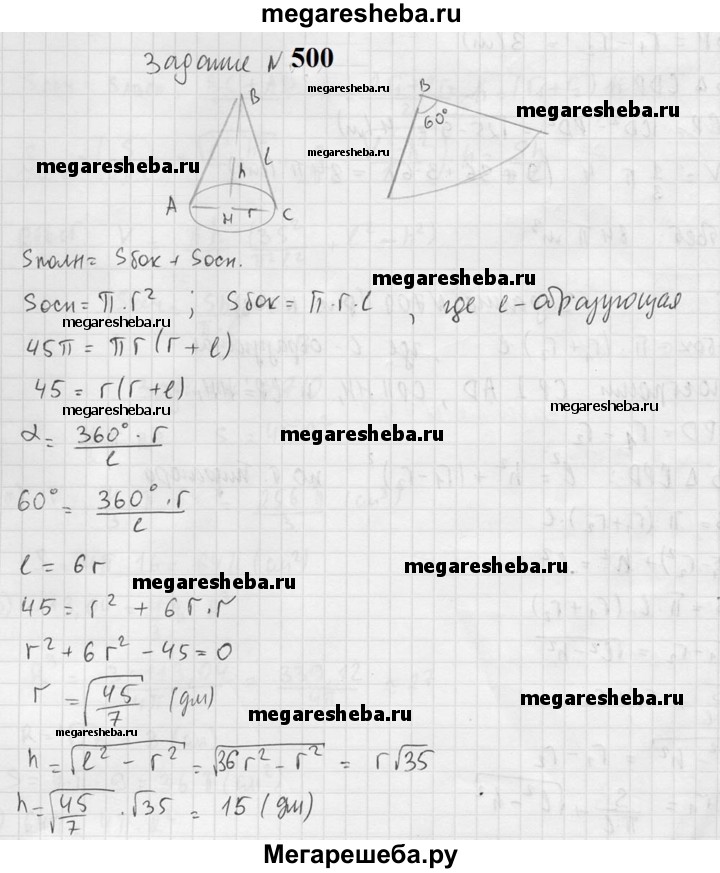 megaresheba.ru
Задание № 500
megaresheba.ru
megaresheba.ru
megaresheba.ru
megaresheba.ru
B
l
h
A
H
r
C
B
60°
Sполн = Sбок + Sосн.
megaresheba.ru
Sосн = π·r² ; Sбок = π·r·l , где l – образующая
megaresheba.ru
45π = πr(r + l)
45 = r(r + l)
megaresheba.ru
megaresheba.ru
α = 360°·r / l
megaresheba.ru
60° = 360°·r / l
l = 6r
megaresheba.ru
megaresheba.ru
45 = r² + 6r·r
r² + 6r² - 45 = 0
r = √45/7 (дм)
megaresheba.ru
megaresheba.ru
megaresheba.ru
h = √l² - r² = √36r² - r² = r√35
h = √45/7 · √35 = 15 (дм)
Мегарешеба.ру